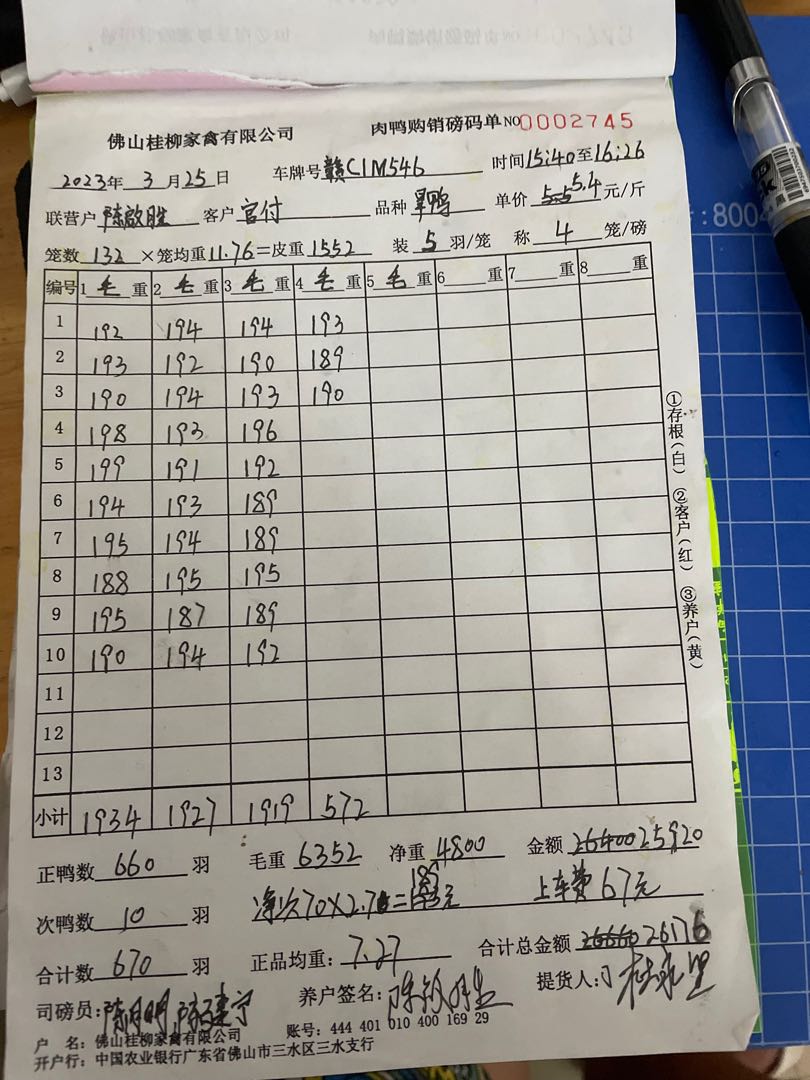 佛山桂柳家禽有限公司 肉鸭购销磅码单 NO 0002745
2023年 3 月 25 日 车牌号 赣C1M546 时间 15:40 至 16:26
联营户 陈啟胜 客户 官付 品种 旱鸭 单价 5.5 5.4 元/斤
笼数 132 ×笼均重 11.76 =皮重 1552 装 5 羽/笼 称 4 笼/磅
编号 1 毛 重 2 毛 重 3 毛 重 4 毛 重 5 毛 重 6 重 7 重 8 重
1 192 194 194 193
2 193 192 190 189
3 190 194 193 190
4 198 193 196
5 199 191 192
6 194 193 189
7 195 194 189
8 188 195 195
9 195 187 189
10 190 194 192
11
12
13
小计 1934 1927 1919 572
①存根(白) ②客户(红) ③养户(黄)
正鸭数 660 羽 毛重 6352 净重 4800 金额 26400 25920
次鸭数 10 羽 净次70×2.7=189元 上车费 67元
合计数 670 羽 正品均重: 7.27 合计总金额 26660 26176
司磅员: 养户签名: 提货人:
户 名: 佛山桂柳家禽有限公司 账号: 444 401 010 400 169 29
开户行: 中国农业银行广东省佛山市三水区三水支行
8004